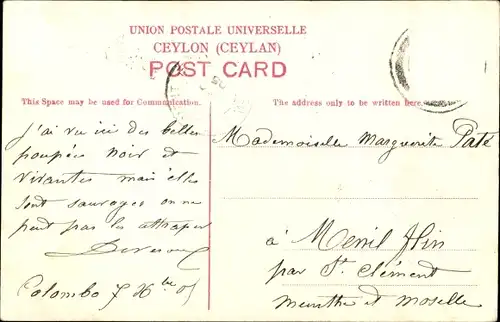 UNION POSTALE UNIVERSELLE
CEYLON (CEYLAN)
POST CARD
This Space may be used for Communication.
The address only to be written here.
J'ai vu ici des belles
poupées noir et
vivantes mais elles
sont sauvages on ne
peut pas les attraper
Colombo 7
Mademoiselle Marguerite Paté
à Menil Flin
par St. Clément
Meurthe et Moselle